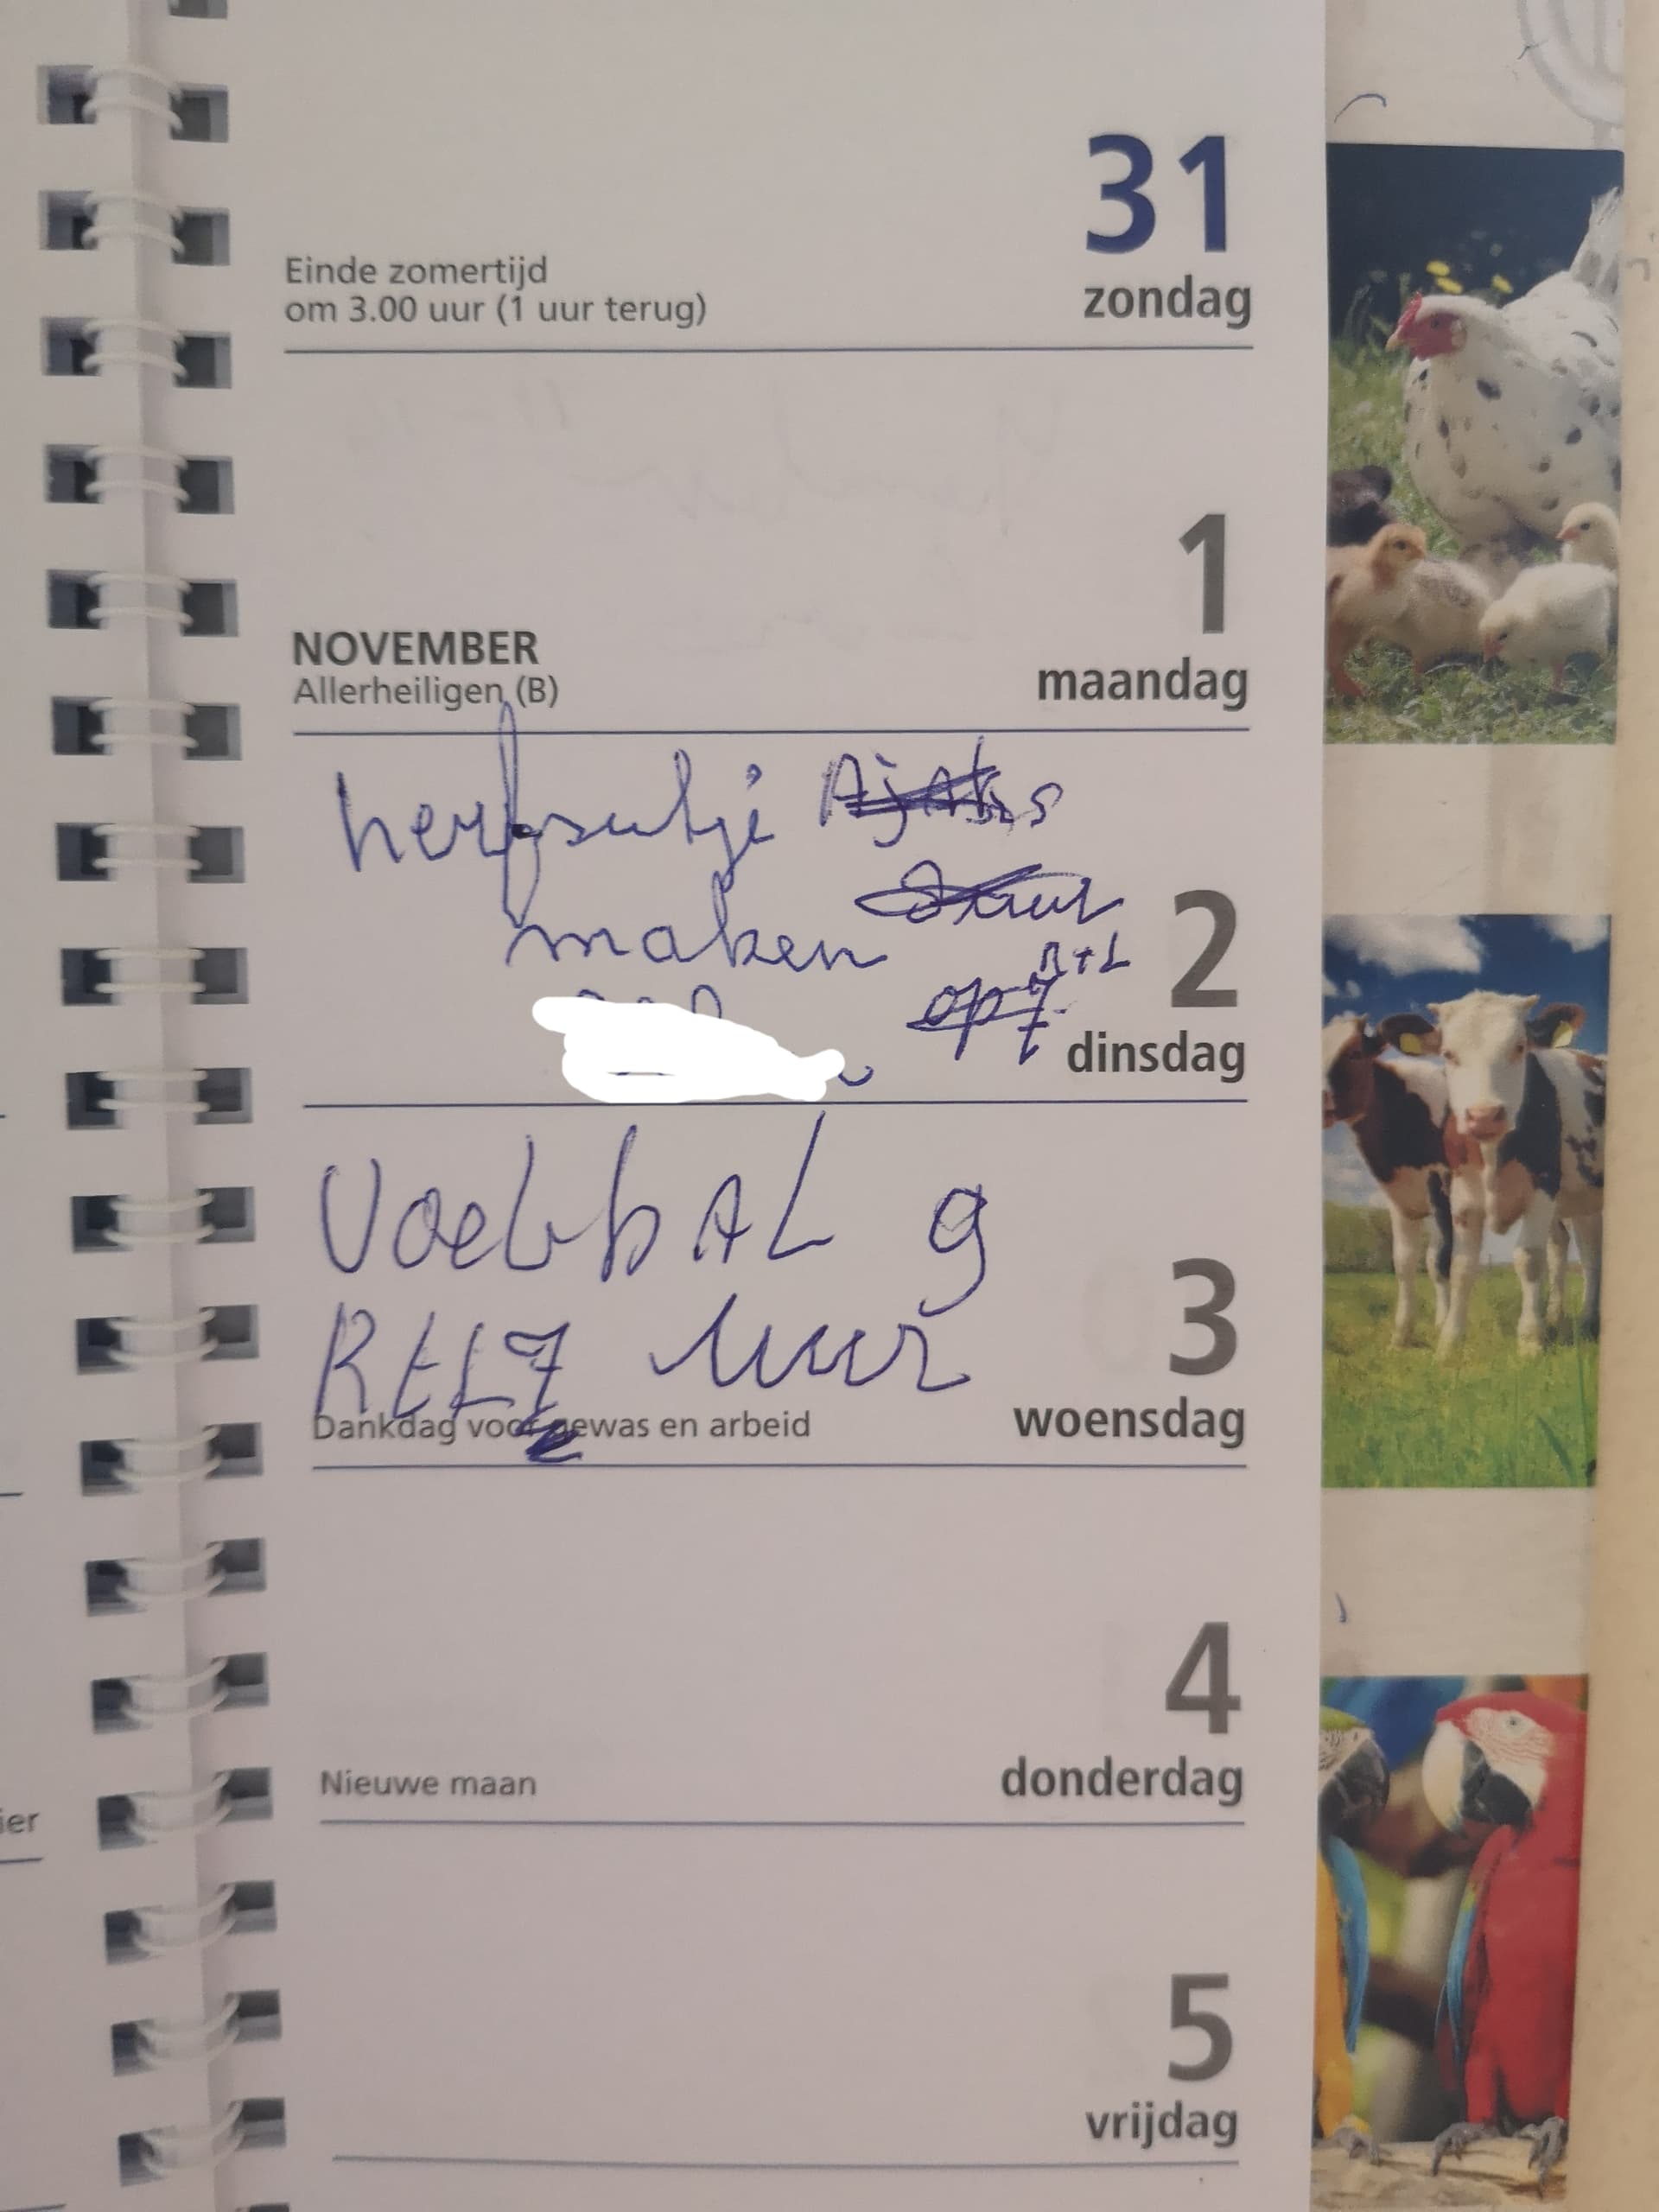 31
Einde zomertijd
om 3.00 uur (1 uur terug)
zondag
1
NOVEMBER
Allerheiligen (B)
maandag
maken
2
R+L
op 7
dinsdag
Voebbal 9
3
uur
Dankdag voor gewas en arbeid
woensdag
4
Nieuwe maan
donderdag
5
vrijdag
ier